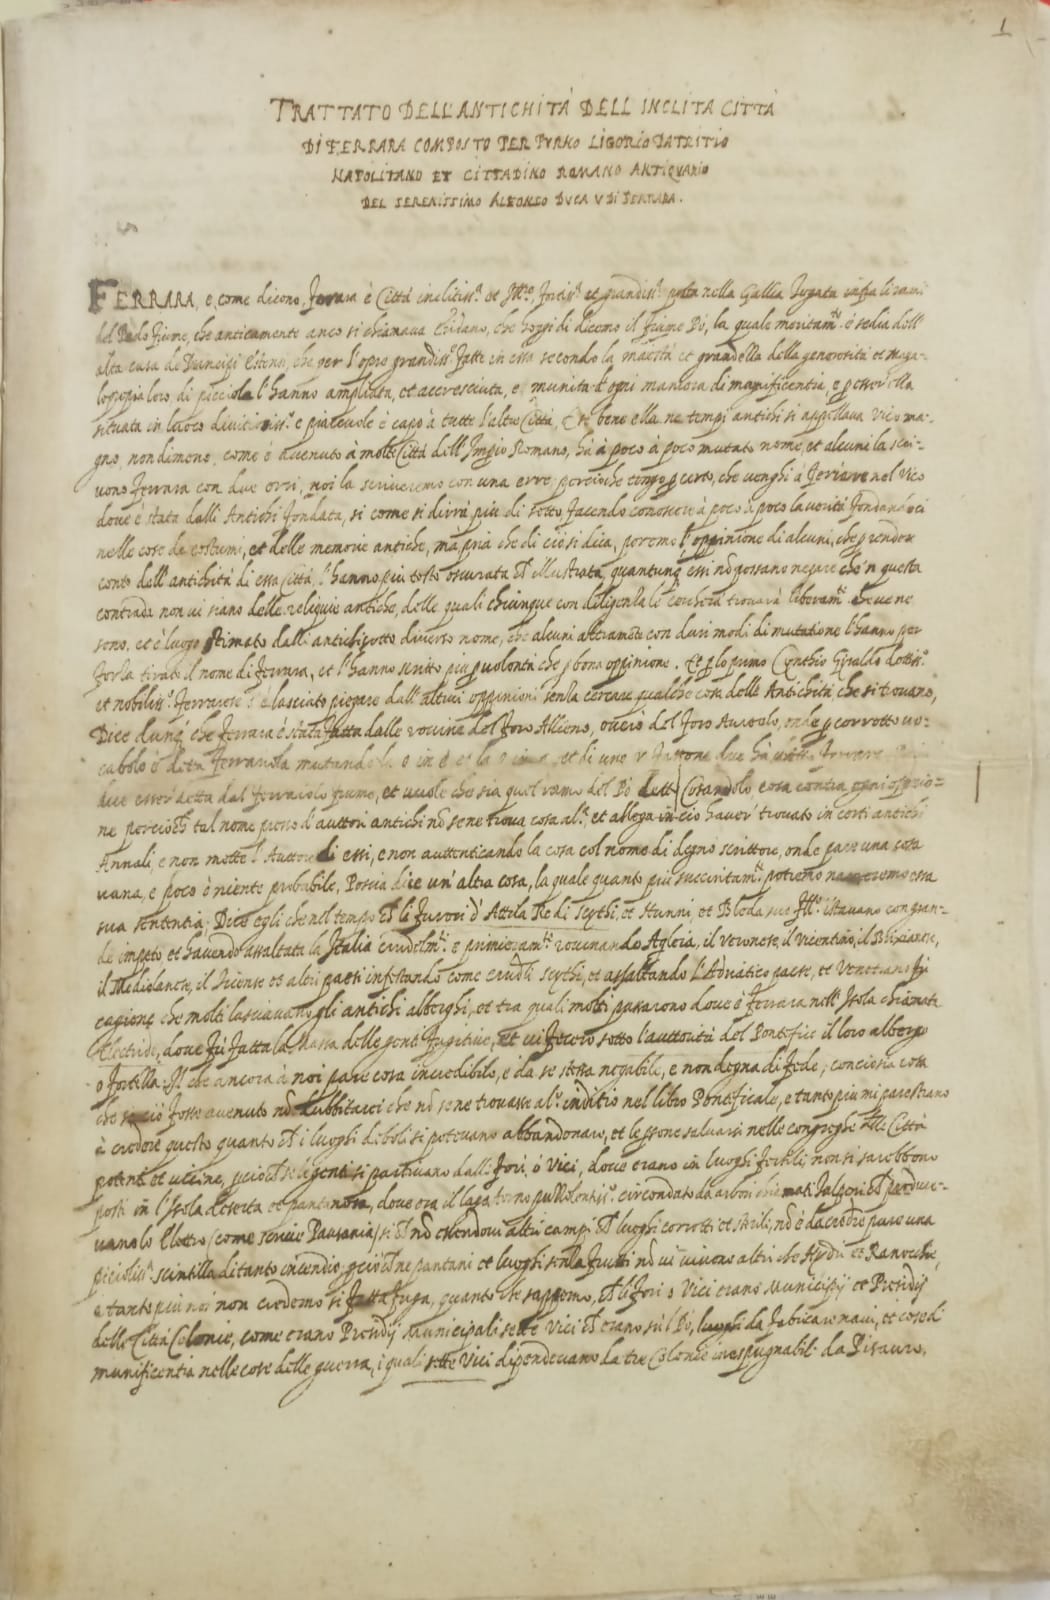 1
TRATTATO DELL'ANTICHITÁ DELL INCLITA CITTÁ
DI FERRARA COMPOSTO PER PYRRO LIGORIO PATRITIO
NAPOLITANO ET CITTADINO ROMANO ANTIQVARIO
DEL SERENISSIMO ALFONSO DVCA V DI FERRARA.
FERRARA, e, come dicono, Ferrara è Città inclitiss.ª et Ill.re, fortiss.ª et grandiss.ª posta nella Gallia Togata infra li rami
del Pado fiume, che anticamente anco si chiamava Eridano, che hoggi di dicemo il fiume Pò, la quale meritam.te è sedia dell'
alta casa de Prencipi Estensi, che per l'opre grandiss.e fatte in essa secondo la maestà et grandezza della generosità et
loro, di picciola l'hanno ampliata, et accresciuta, e munita d'ogni maniera di magnificentia, e per esser ella
situata in luoco e piacevole è capo à tutte l'altre Città, Et se bene ella ne tempi antichi si appellava Vico ma-
gno, nondimeno, come è avenuto à molte Città dell'Imperio Romano, hà à poco à poco mutato nome, et alcuni la scri-
vono Ferrara con due erri, noi la scriveremo con una erre percioche tengo per certo, che venghi à nel Vico
dove è stata dalli Antichi fondata, si come si dirrà piu di sotto facendo conoscere à poco à poco la verità fondandoci
nelle cose de costumi, et delle memorie antiche, mà pria che di ciò si dica, poremo l'oppinione di alcuni, che prender
conto dell'antichità di essa Città, l'hanno più tosto oscurata che illustrata, quantunq essi nõ possano negare che 'n questa
contrada non vi siano delle reliquie antiche, delle quali chiunque con diligenza le cercherà trovarà liberam.te che ve ne
sono, et è luogo stimato dalli antichi sotto diverso nome, che alcuni altramẽte con duri modi di mutatione l'hanno per
forza tirato il nome di Ferrara, et l'hanno scritto più p volontà che p bona oppinione. Et p lo primo Cynthio Gyraldo dottiss.º
et nobiliss.º Ferrarese s'è lasciato piegare dall'altrui oppinioni senza cercare qualche cosa delle Antichità che si trovano,
Dice dunq che Ferrara è stata fatta dalle rovine del foro Allieno, overo del foro, onde p corrotto vo-
cabolo è detta Ferrariola mutando la o in e et la o in a, et di uno r fattone due hà
due esser detta dal ferraiolo fiume, et vuole che sia quel ramo del Pò detto Corandolo, cosa contra ogni oppinio-
ne percioche tal nome presso d'auttori antichi nõ se ne trova cosa al.ª, et allega in ciò haver trovato in certi antichi
Annali, e non mette l'Auttore di essi, e non auttenticando la cosa col nome di degno scrittore, onde pare una cosa
vana, e poco è niente probabile, Poscia dice un'altra cosa, la quale quanto più succintam.te potremo narraremo essa
sua sententia; Dice egli che nel tempo che li furori d'Attila Re di Scythi, et Hunni, et Bleda suo f.llo stavano con gran-
de impeto et havendo assaltata la Italia crudelm.te e primieram.te rovinando Agleia, il Veronese, il Vicentino, il Brixianese,
il Mediolanese, il Ticense et altri paesi infestando come crudeli Scythi, et assaltando l'Adriatico paese, et Venetiano fù
cagione che molti lasciavano gli antichi alberghi, et tra quali molti passarono dove è Ferrara nell'Isola chiamata
Electride, dove fù fatta la Massa delle genti fugitive, et vi fecero sotto l'auttorità del Pontefice il loro albergo
o fortezza: Il che ancora à noi pare cosa incredibile, e da se stessa negabile, e non degna di fede, conciosia cosa
che se ciò fosse avenuto nõ dubbitarei che nõ se ne trovasse al.º inditio nel libro Pontificale, e tanto più mi parestrano
à credere questo quanto che i luoghi deboli si potevano abbandonare, et le persone salvarsi nelle congreghe delle Città
potenti et vicine, perciochè se le genti si partivano dalli Fori, ò Vici, dove erano in luoghi fertili; non si sarebbono
posti in l'Isola deserta et pantanosa, dove era il lagaterno puzzolentiss.º circondato da arbori chiamati che produce-
vano lo Elettro (come scrive Pausania) si che nõ essendovi altri campi che luoghi corrotti et sterili, nõ è da credere pure una
picioliss.ª scintilla di tanto incendio, perciochè ne pantani et luoghi senza frutti nõ vi vivono altri che Hydri et Ranocchie,
e tanto più noi non credemo si fatta fuga, quanto che sappemo, che li fori o Vici erano Municipij et Presidij
delle Città Colonie, come erano Presidij Municipali sette Vici che erano sul Pò, luoghi da fabricare navi, et cose di
munificentia nelle cose delle guerra, i quali sette Vici dipendevano da tre Colonie inespugnabili da Pisauro,